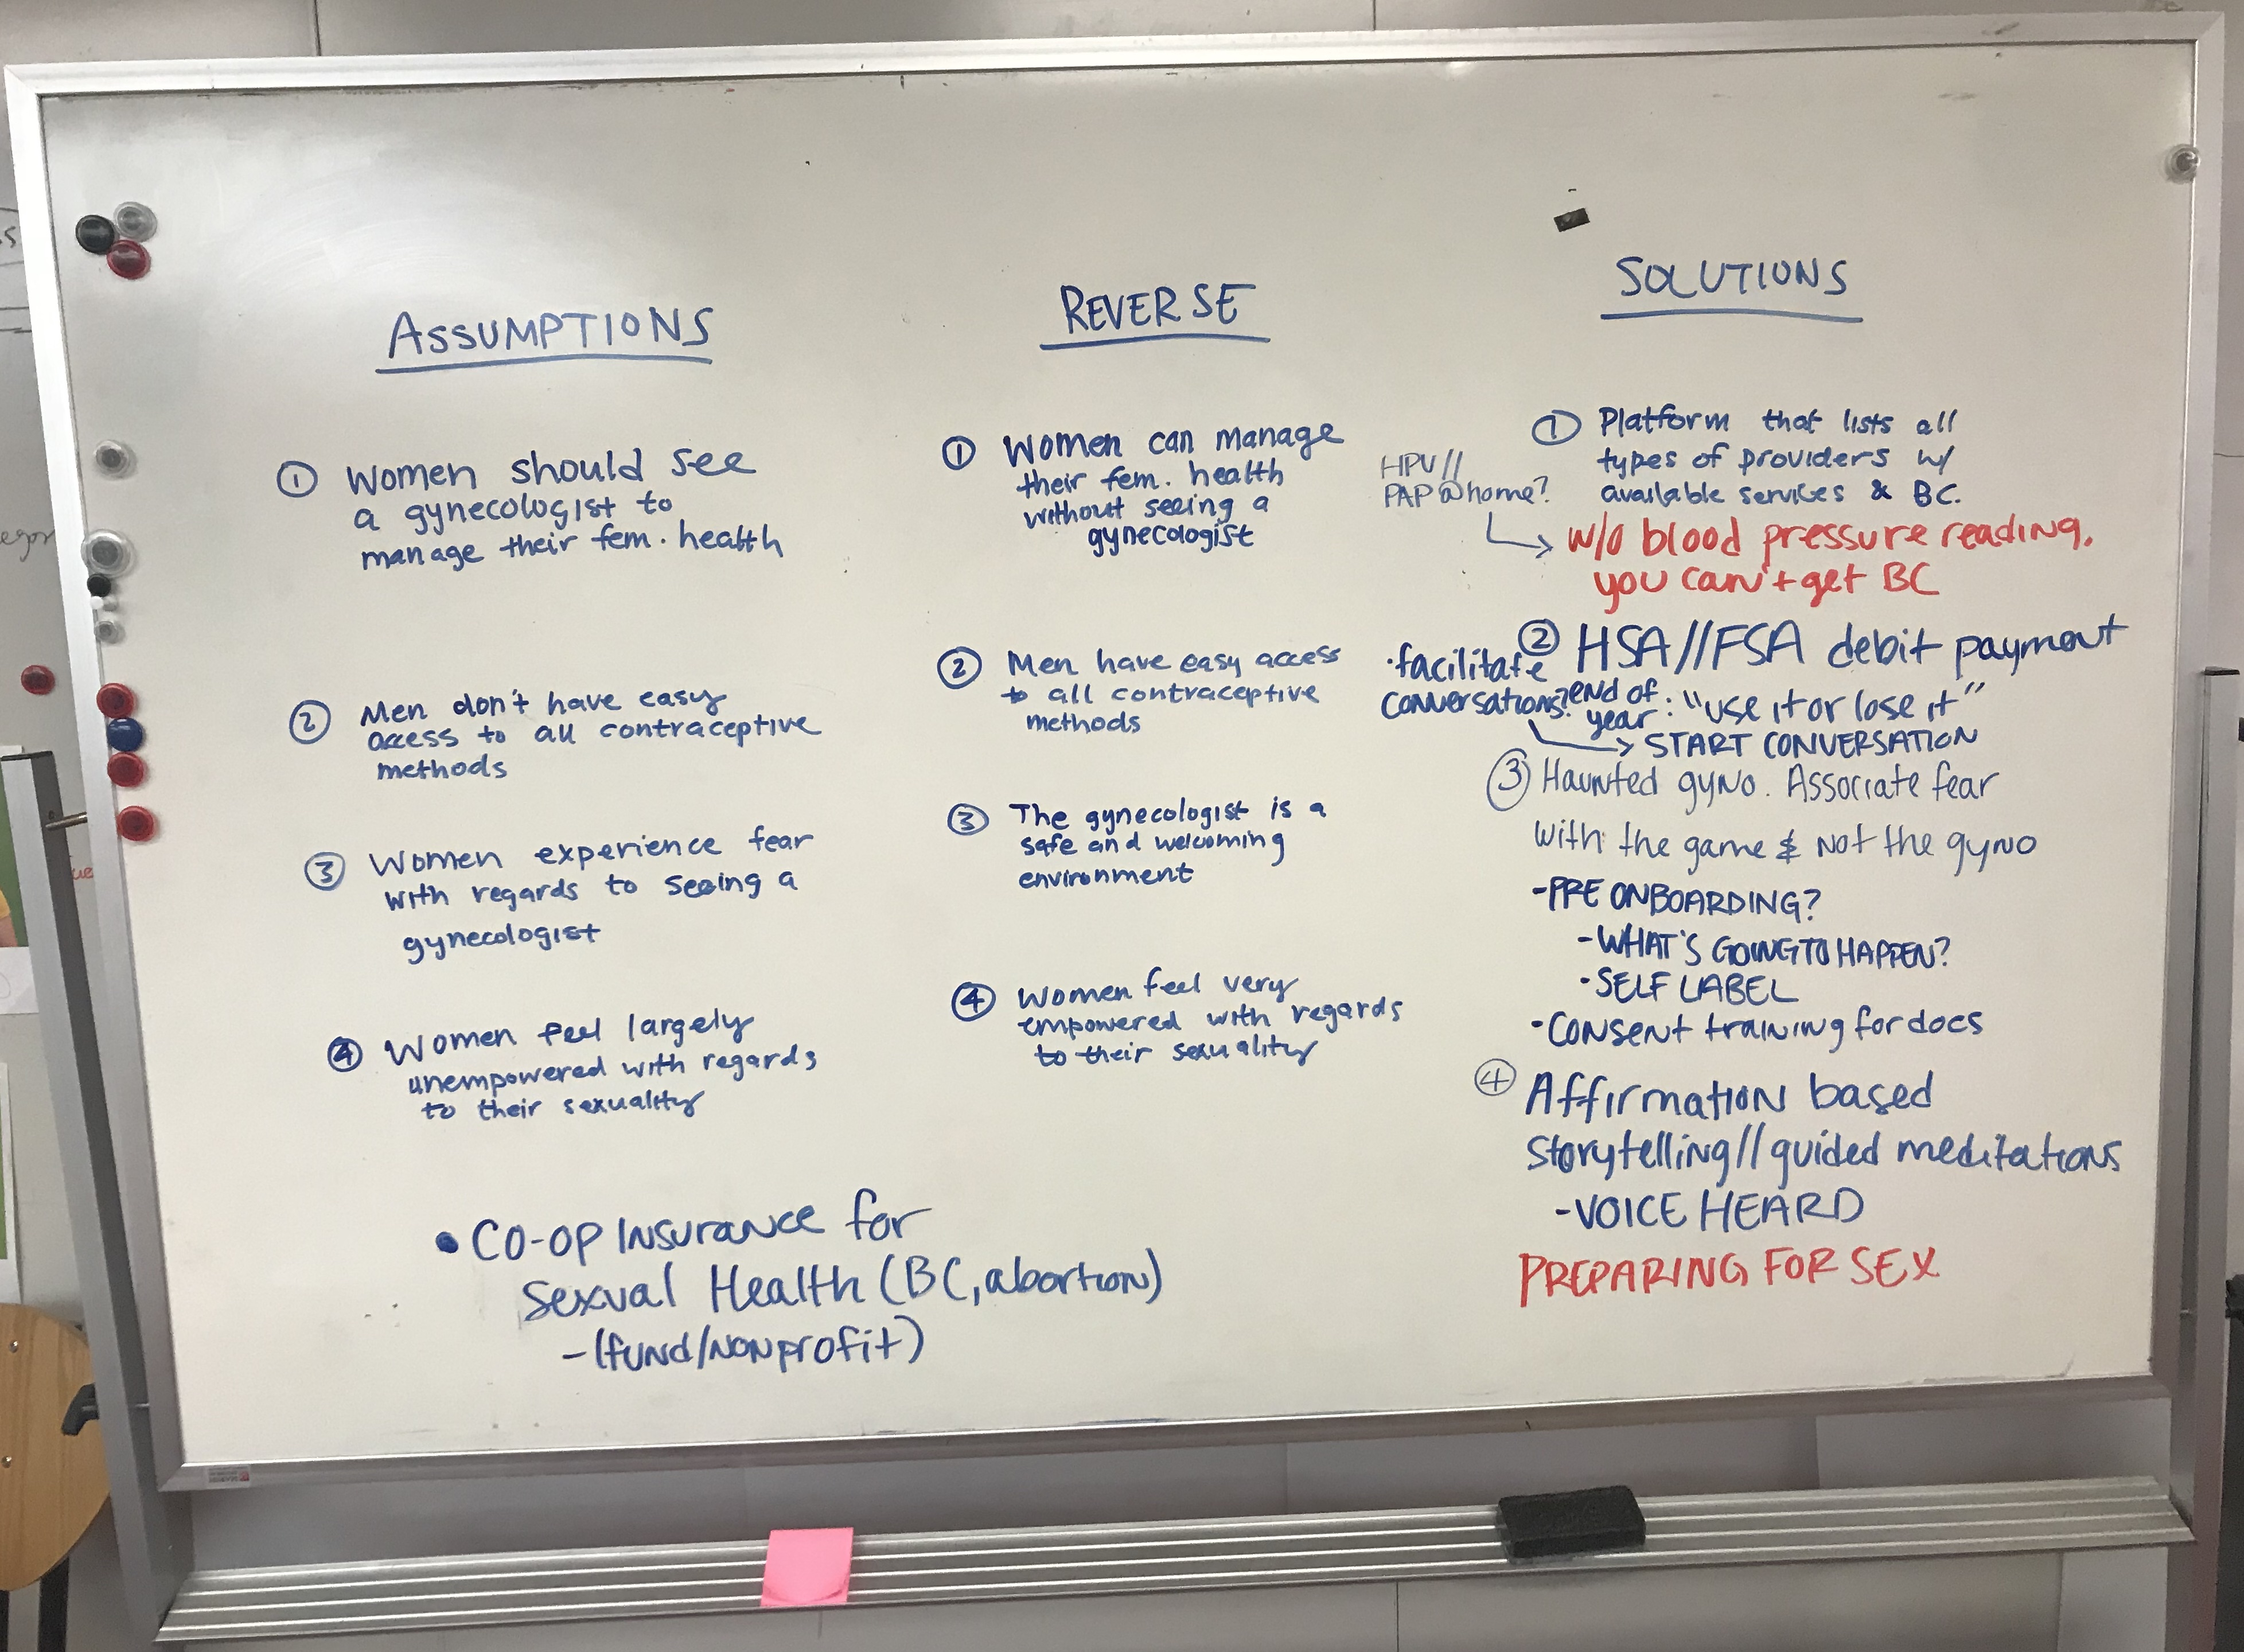 ASSUMPTIONS
① Women should see
a gynecologist to
manage their fem. health
② Men don't have easy
access to all contraceptive
methods
③ Women experience fear
with regards to seeing a
gynecologist
④ Women feel largely
unempowered with regards
to their sexuality
• CO-OP Insurance for
Sexual Health (BC, abortion)
- (fund/nonprofit)
REVERSE
① Women can manage
their fem. health
without seeing a
gynecologist
② Men have easy access
to all contraceptive
methods
③ The gynecologist is a
safe and welcoming
environment
④ Women feel very
empowered with regards
to their sexuality
SOLUTIONS
① Platform that lists all
types of providers w/
available services & BC.
HPV//
PAP @home?
w/o blood pressure reading,
you can't get BC
② HSA//FSA debit payment
•facilitate
conversations?
end of
year: "use it or lose it"
→ START CONVERSATION
③ Haunted gyno. Associate fear
with the game & not the gyno
-PRE ONBOARDING?
-WHAT'S GOING TO HAPPEN?
•SELF LABEL
•Consent training for docs
④ Affirmation based
Storytelling//guided meditations
-VOICE HEARD
PREPARING FOR SEX